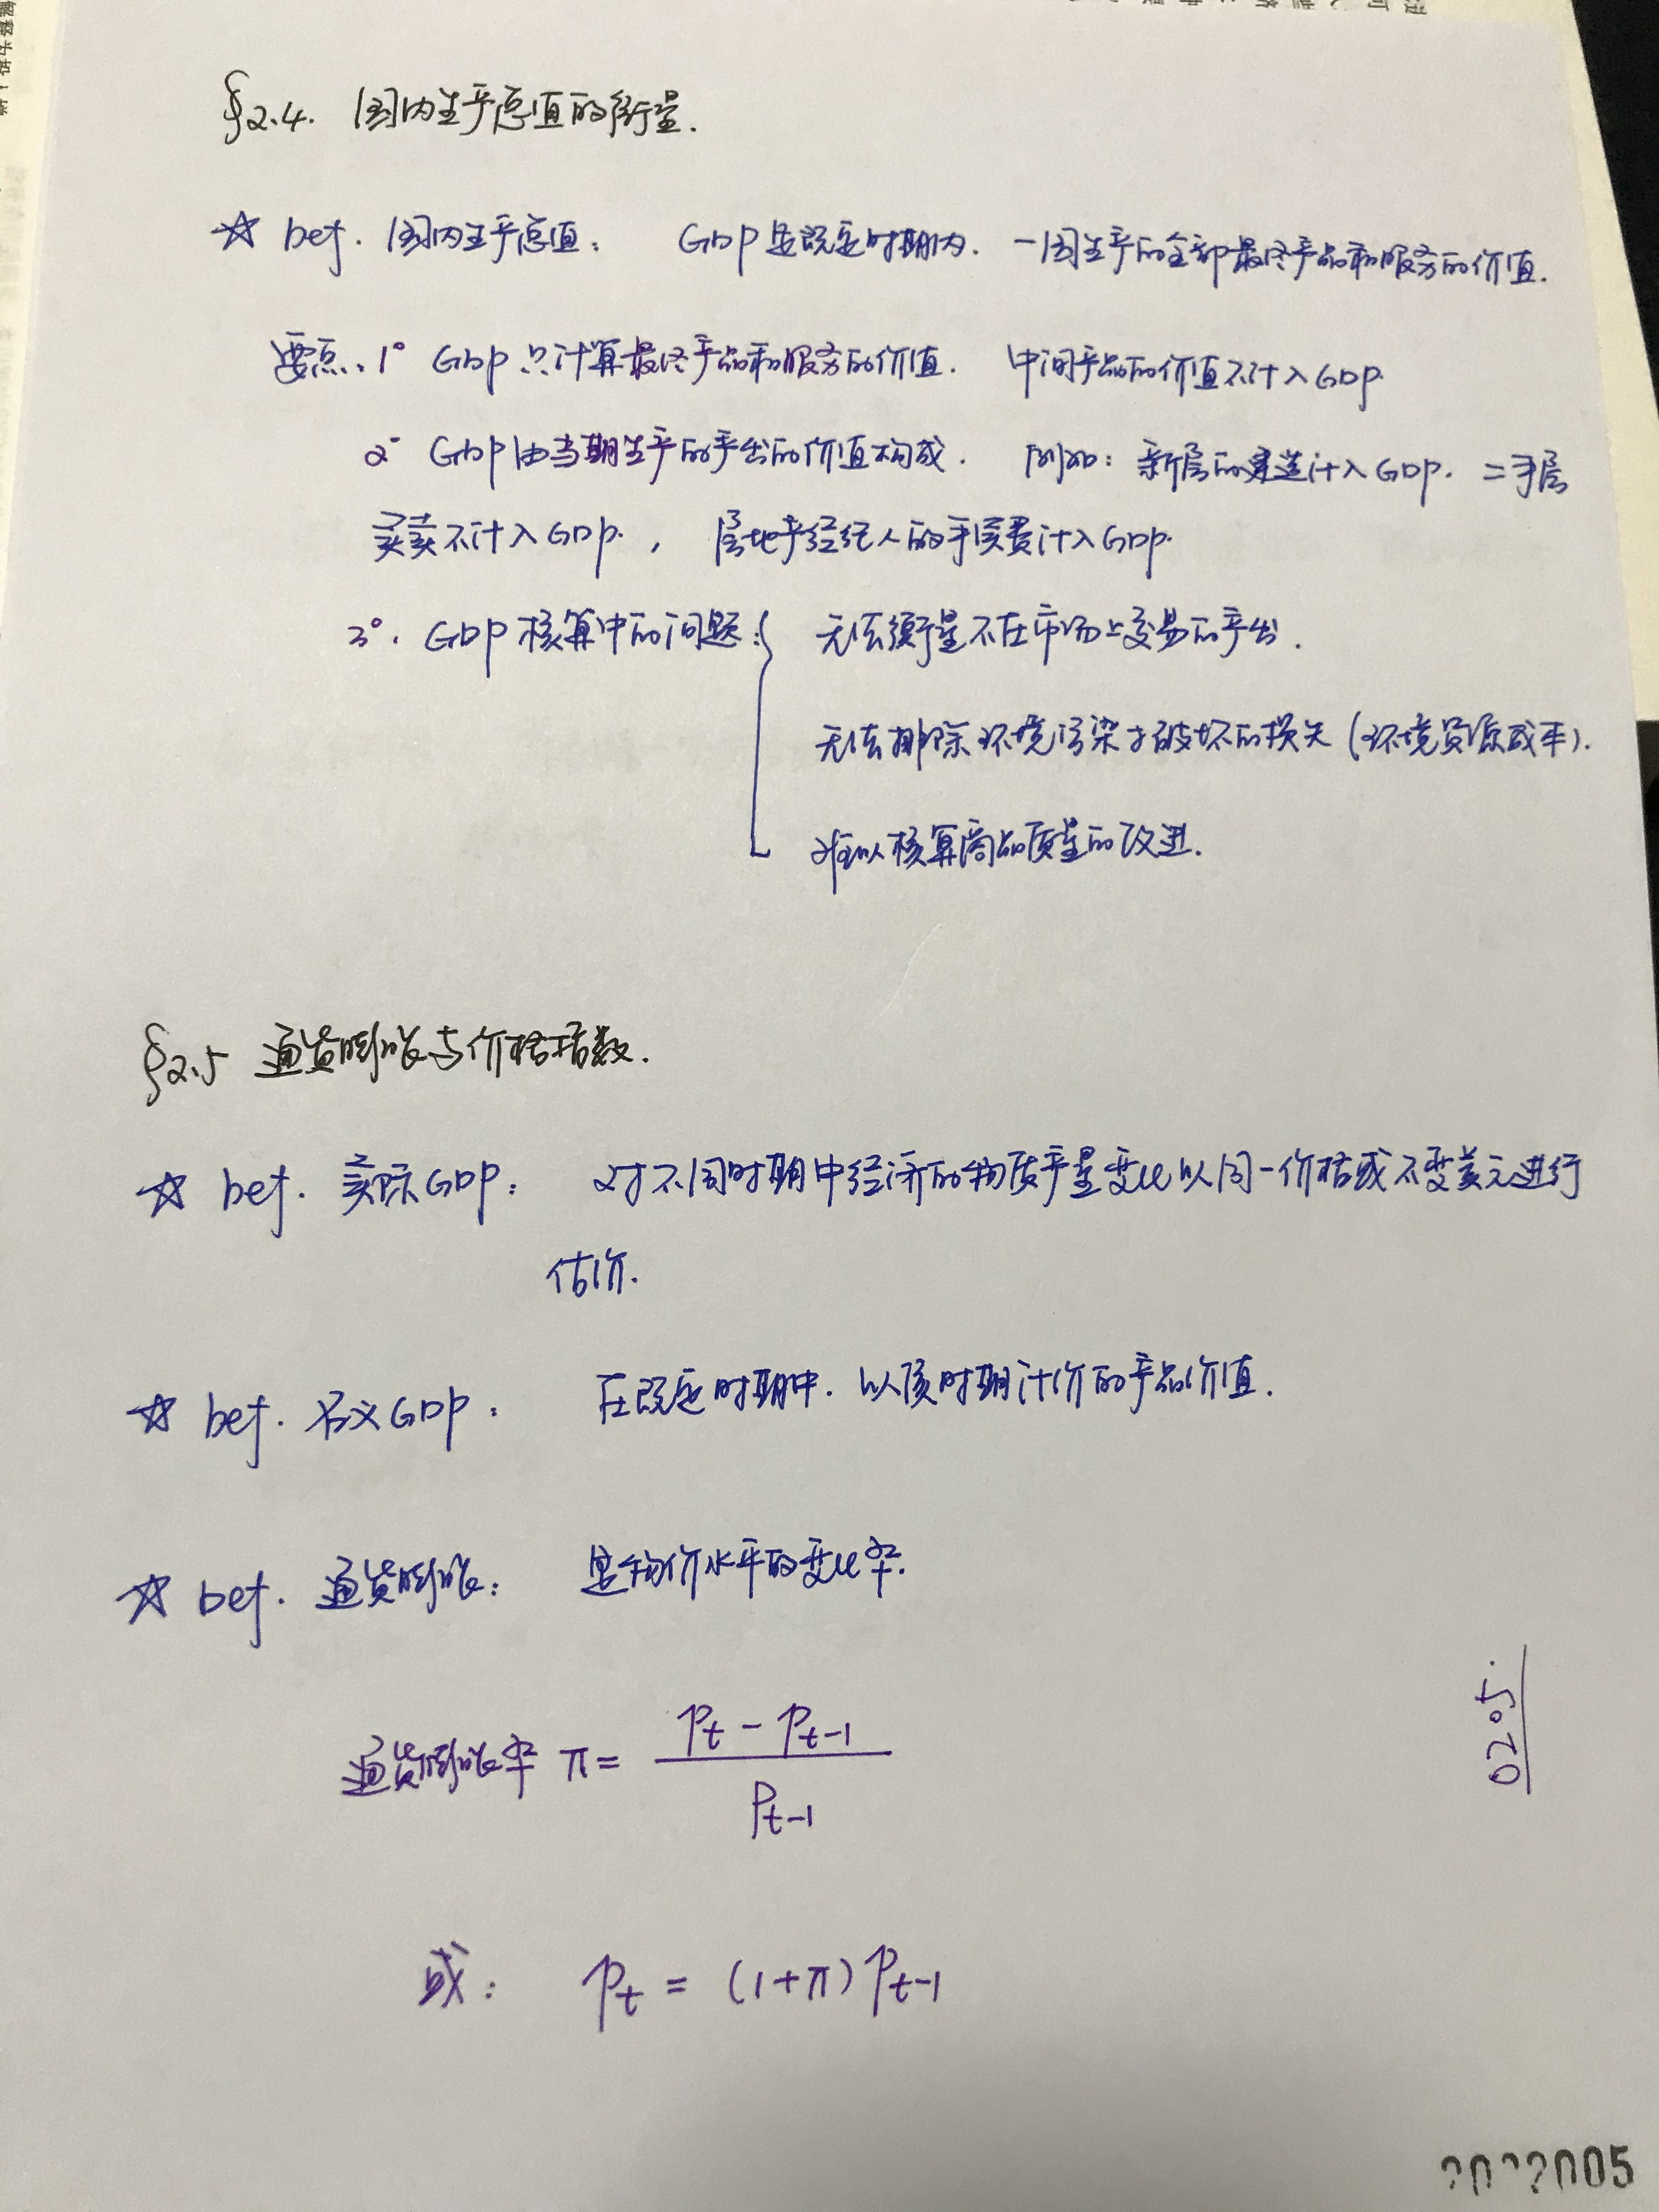 §2.4. 国内生产总值的衡量.
☆ Def. 国内生产总值: GDP是既定时期内. 一国生产的全部最终产品和服务的价值.
要点: 1° GDP只计算最终产品和服务的价值. 中间产品的价值不计入GDP.
2° GDP由当期生产的产出的价值构成. 例如: 新房的建造计入GDP. 二手房
买卖不计入GDP. , 房地产经纪人的手续费计入GDP.
3°. GDP核算中的问题: { 无法衡量不在市场上交易的产出.
无法排除环境污染才破坏的损失 (环境资源成本).
难以核算商品质量的改进.
§2.5 通货膨胀与价格指数.
☆ Def. 实际GDP: 对不同时期中经济的物质产量变化以同一价格或不变美元进行
估价.
☆ Def. 名义GDP: 在既定时期中. 以该时期计价的产品价值.
☆ Def. 通货膨胀: 是物价水平的变化率.
通货膨胀率 π = (Pt - Pt-1) / Pt-1
或: Pt = (1+π) Pt-1
0205.